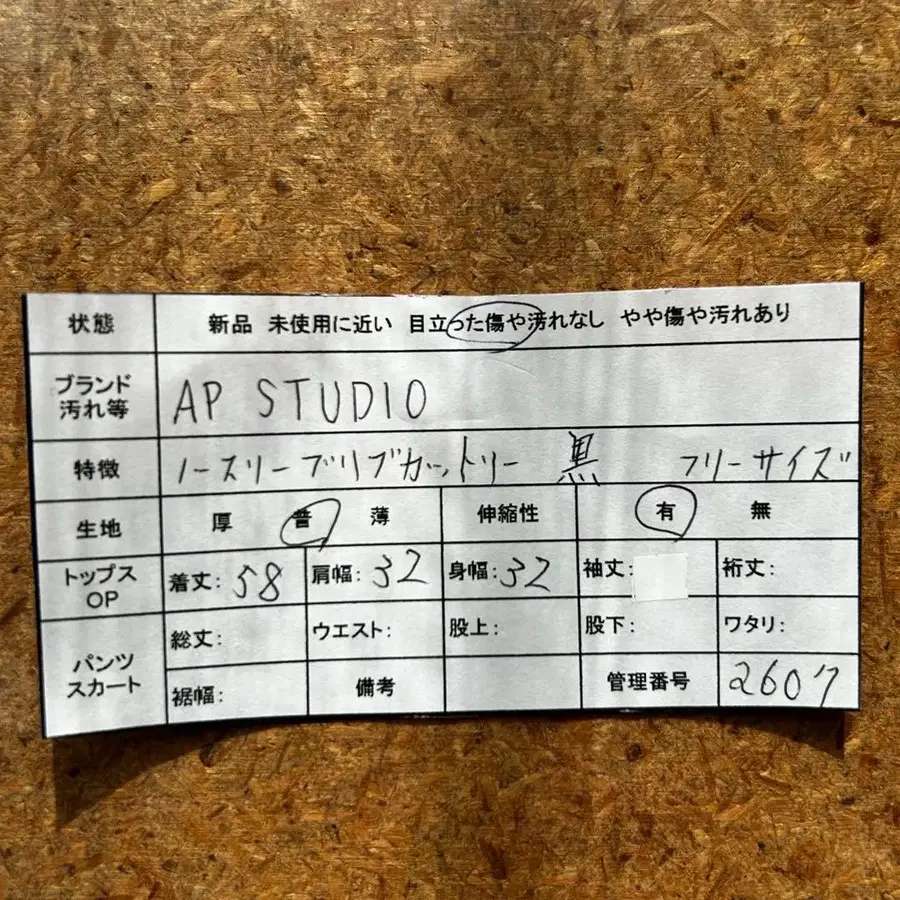 状態 新品 未使用に近い 目立った傷や汚れなし やや傷や汚れあり
ブランド 汚れ等 AP STUDIO
特徴 ノースリーブリブカットソー 黒 フリーサイズ
生地 厚 普 薄 伸縮性 有 無
トップス OP 着丈: 58 肩幅: 32 身幅: 32 袖丈: 裄丈:
パンツ スカート 総丈: ウエスト: 股上: 股下: ワタリ:
裾幅: 備考 管理番号 2607